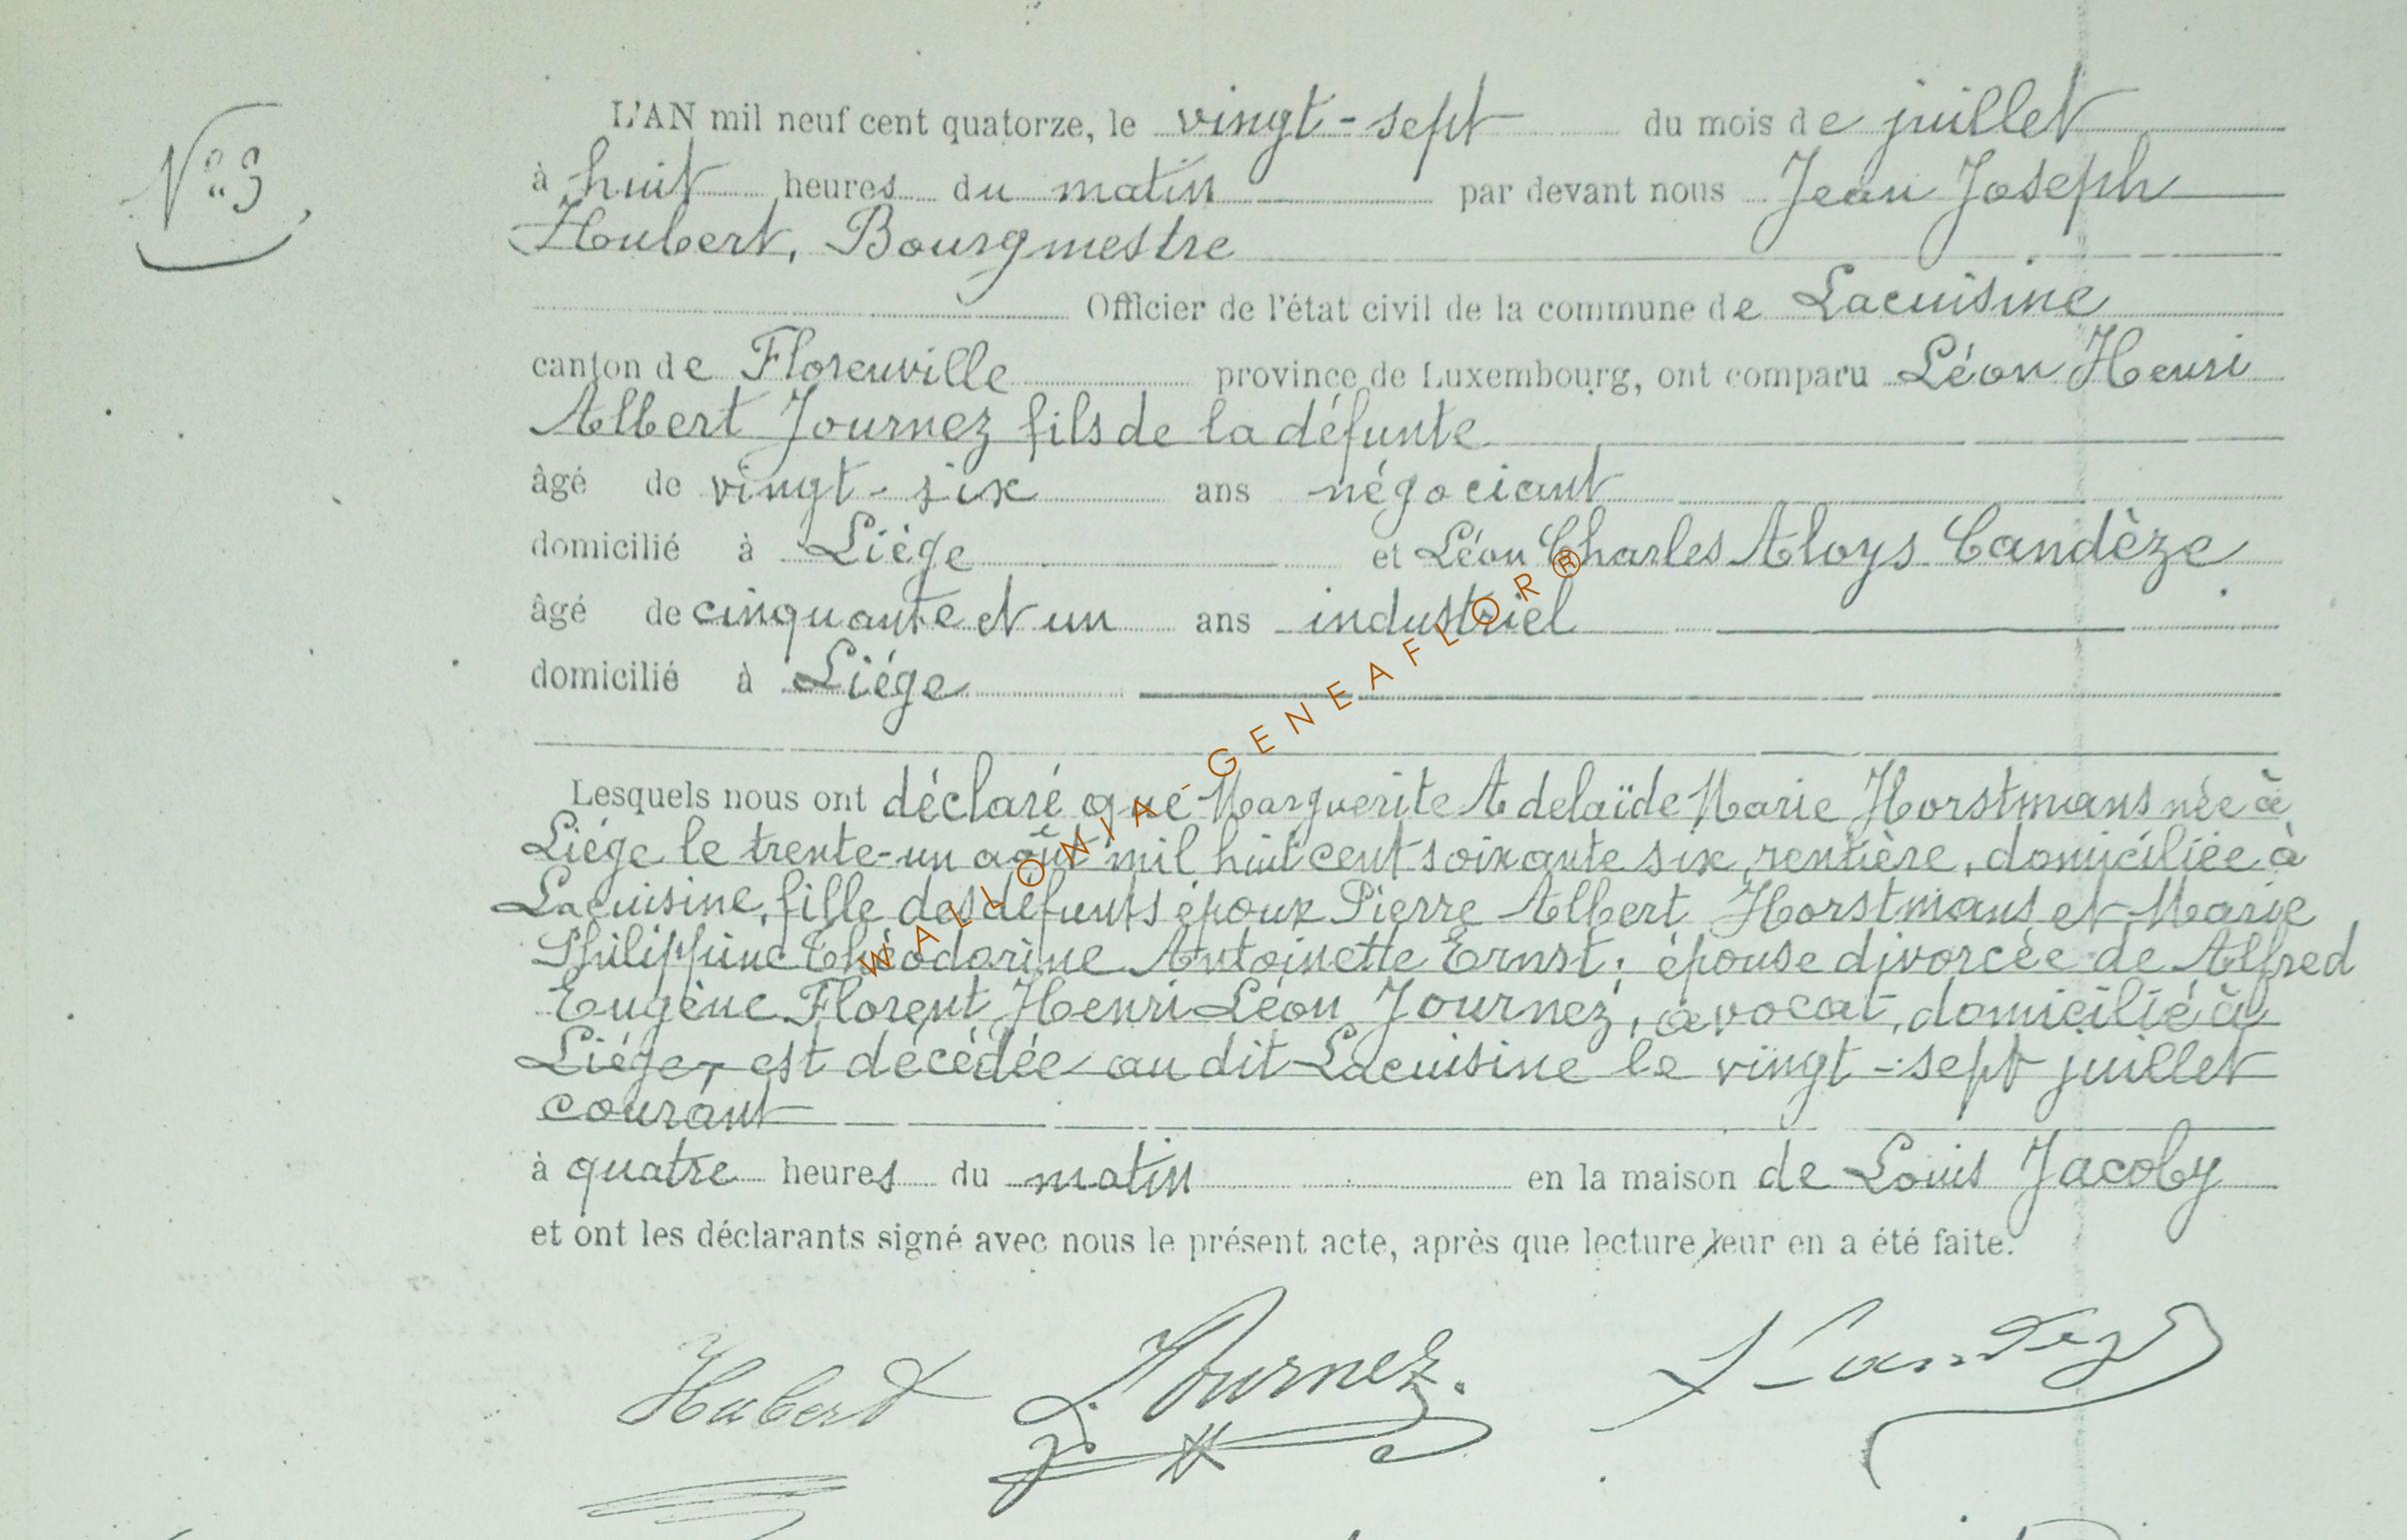 N° 3
L'AN mil neuf cent quatorze, le vingt-sept du mois de juillet
à huit heures du matin par devant nous Jean Joseph
Hubert, Bourgmestre
Officier de l'état civil de la commune de Lacuisine
canton de Florenville province de Luxembourg, ont comparu Léon Henri
Albert Journez fils de la défunte
âgé de vingt-six ans négociant
domicilié à Liége et Léon Charles Aloys Candèze
âgé de cinquante et un ans industriel
domicilié à Liége
Lesquels nous ont déclaré que Marguerite Adelaïde Marie Horstmans née à
Liége le trente-un août mil huit cent soixante six, rentière, domiciliée à
Lacuisine, fille des défunts époux Pierre Albert Horstmans et Marie
Philippine Théodorine Antoinette Ernst; épouse divorcée de Alfred
Eugène Florent Henri Léon Journez, avocat, domicilié à
Liége, est décédée au dit Lacuisine le vingt-sept juillet
courant
à quatre heures du matin en la maison de Louis Jacoby
et ont les déclarants signé avec nous le présent acte, après que lecture leur en a été faite.
Hubert L. Journez. L Candèze
WALLONIA-GENEAFLOR®